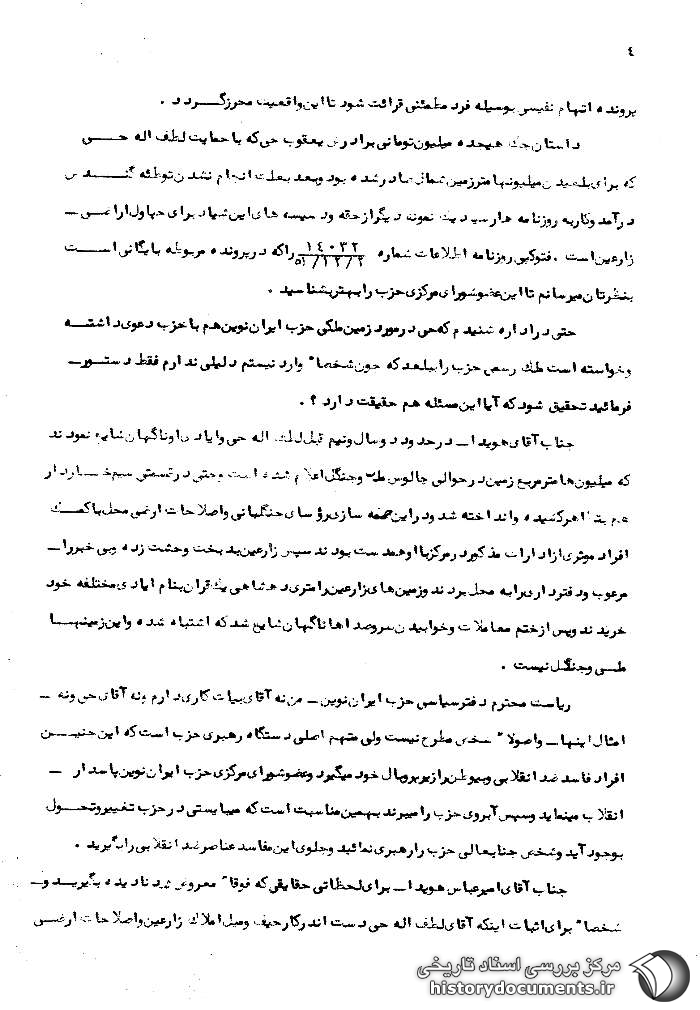 ٤
پرونده اتهام نفیسر بوسیله فرد مطمئنی قرائت شود تا این واقعیت محرز گردد .
داستان چک هیجده میلیون تومانی برادرش یعقوب حی که با حمایت لطف اله حی
که برای بلعیدن میلیونها متر زمین شمال صادر شده بود و بعد بعلت انجام نشدن توطئه گندش
درآمد و کار به روزنامه ها رسید یک نمونه دیگر از حقه و دسیسه های این شیاد برای چپاول اراضی ـ
زارعین است . فتوکپی روزنامه اطلاعات شماره ۱٤۰۳۲ ۵۱/۱۲/۲ را که در پرونده مربوطه بایگانی است
بنظرتان میرسانم تا این عضو شورای مرکزی حزب را بهتر بشناسید .
حتی در اداره شنیدم که حی در مورد زمین ملکی حزب ایران نوین هم با حزب دعوی داشته
و خواسته است ملک رسمی حزب را ببلعد که چون شخصا" وارد نیستم دلیلی ندارم فقط دستور ـ
فرمائید تحقیق شود که آیا این مسئله هم حقیقت دارد ؟ .
جناب آقای هویدا ـ در حدود دو سال و نیم قبل لطف اله حی و ایادی او ناگهان شایع نمودند
که میلیون ها متر مربع زمین در حوالی چالوس ملی و جنگل اعلام شده است و حتی در قسمتی سیم خاردار
هم بظاهر کشیده و انداخته شد و در این صحنه سازی رؤسای جنگلبانی و اصلاحات ارضی محل با کمک
افراد موثری از ادارات مذکور در مرکز با او همدست بودند سپس زارعین بدبخت وحشت زده و بی خبر را ـ
مرعوب و دفترداری را به محل بردند و زمین های زارعین را متری دهشاهی یک قران بنام ایادی مختلفه خود
خریدند و پس از ختم معاملات و خوابیدن سروصداها ناگهان شایع شد که اشتباه شده و این زمینها
ملی و جنگل نیست .
ریاست محترم دفتر سیاسی حزب ایران نوین ـ من نه آقای بیات کاری دارم و نه آقای حی و نه ـ
امثال اینها ـ و اصولا" شخص مطرح نیست ولی متهم اصلی دستگاه رهبری حزب است که این چنین
افراد فاسد ضد انقلابی و بیوطن را زیر پر و بال خود میگیرد و عضو شورای مرکزی حزب ایران نوین پاسدار ـ
انقلاب مینماید و سپس آبروی حزب را میبرند بهمین مناسبت است که میبایستی در حزب تغییر و تحول
بوجود آید و شخص جنابعالی حزب را رهبری نمائید و جلوی این مفاسد عناصر ضد انقلابی را بگیرید .
جناب آقای امیرعباس هویدا ـ برای لحظاتی حقایقی که فوقا" معروض شد نادیده بگیرید و ـ
شخصا" برای اثبات اینکه آقای لطف اله حی دست اندرکار حیف و میل املاک زارعین و اصلاحات ارضی
مرکز بررسی اسناد تاریخی
historydocuments.ir